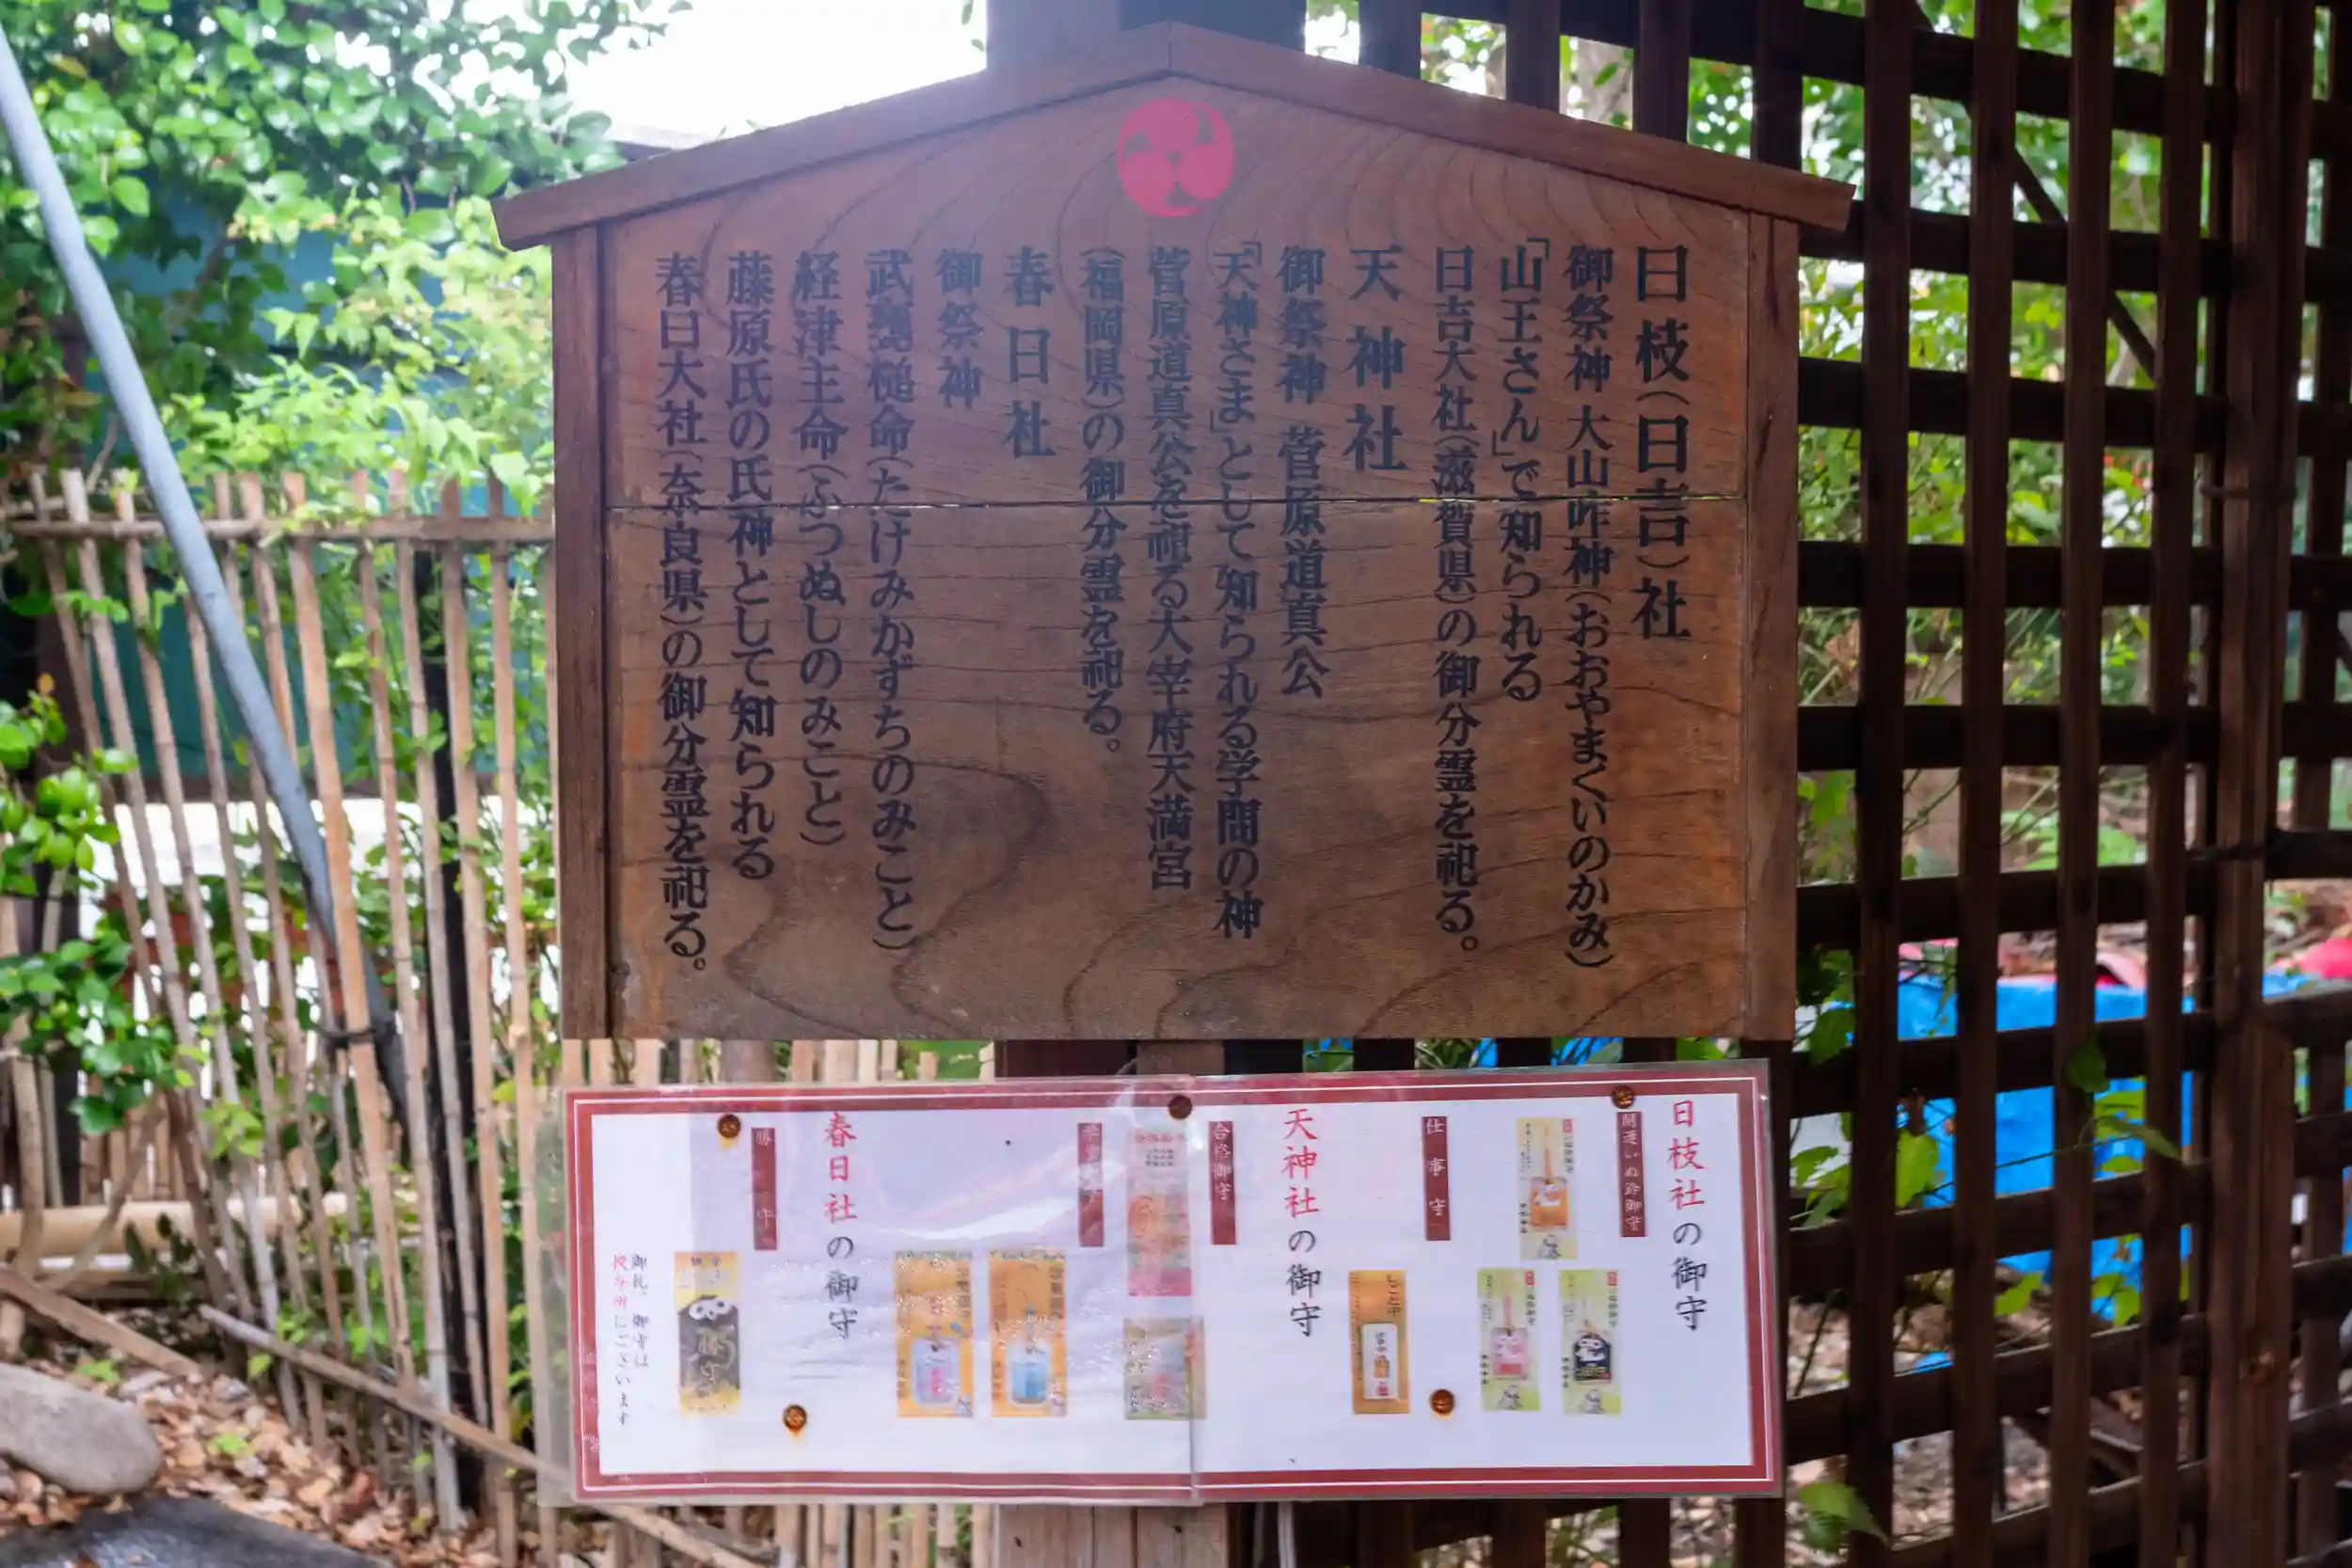 日枝(日吉)社
御祭神 大山咋神(おおやまくいのかみ)
「山王さん」で知られる
日吉大社(滋賀県)の御分霊を祀る。
天神社
御祭神 菅原道真公
「天神さま」として知られる学問の神
菅原道真公を祀る大宰府天満宮
(福岡県)の御分霊を祀る。
春日社
御祭神
武甕槌命(たけみかずちのみこと)
経津主命(ふつぬしのみこと)
藤原氏の氏神として知られる
春日大社(奈良県)の御分霊を祀る。
日枝社の御守
開運いぬ鈴御守
仕事守
しごと守
天神社の御守
合格御守
春日社の御守
勝守
勝守
御札、御守は
授与所にございます